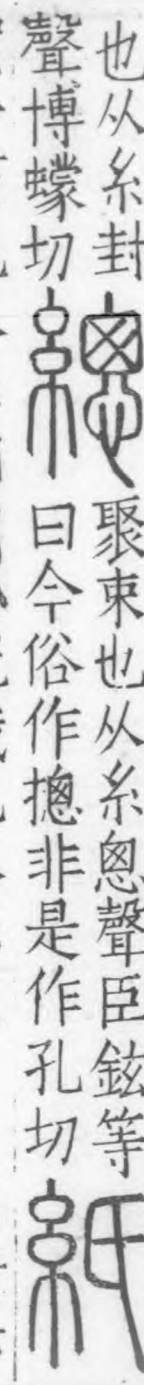 也从糸封
聲博蠓切
總
聚束也从糸悤聲臣鉉等
曰今俗作摠非是作孔切